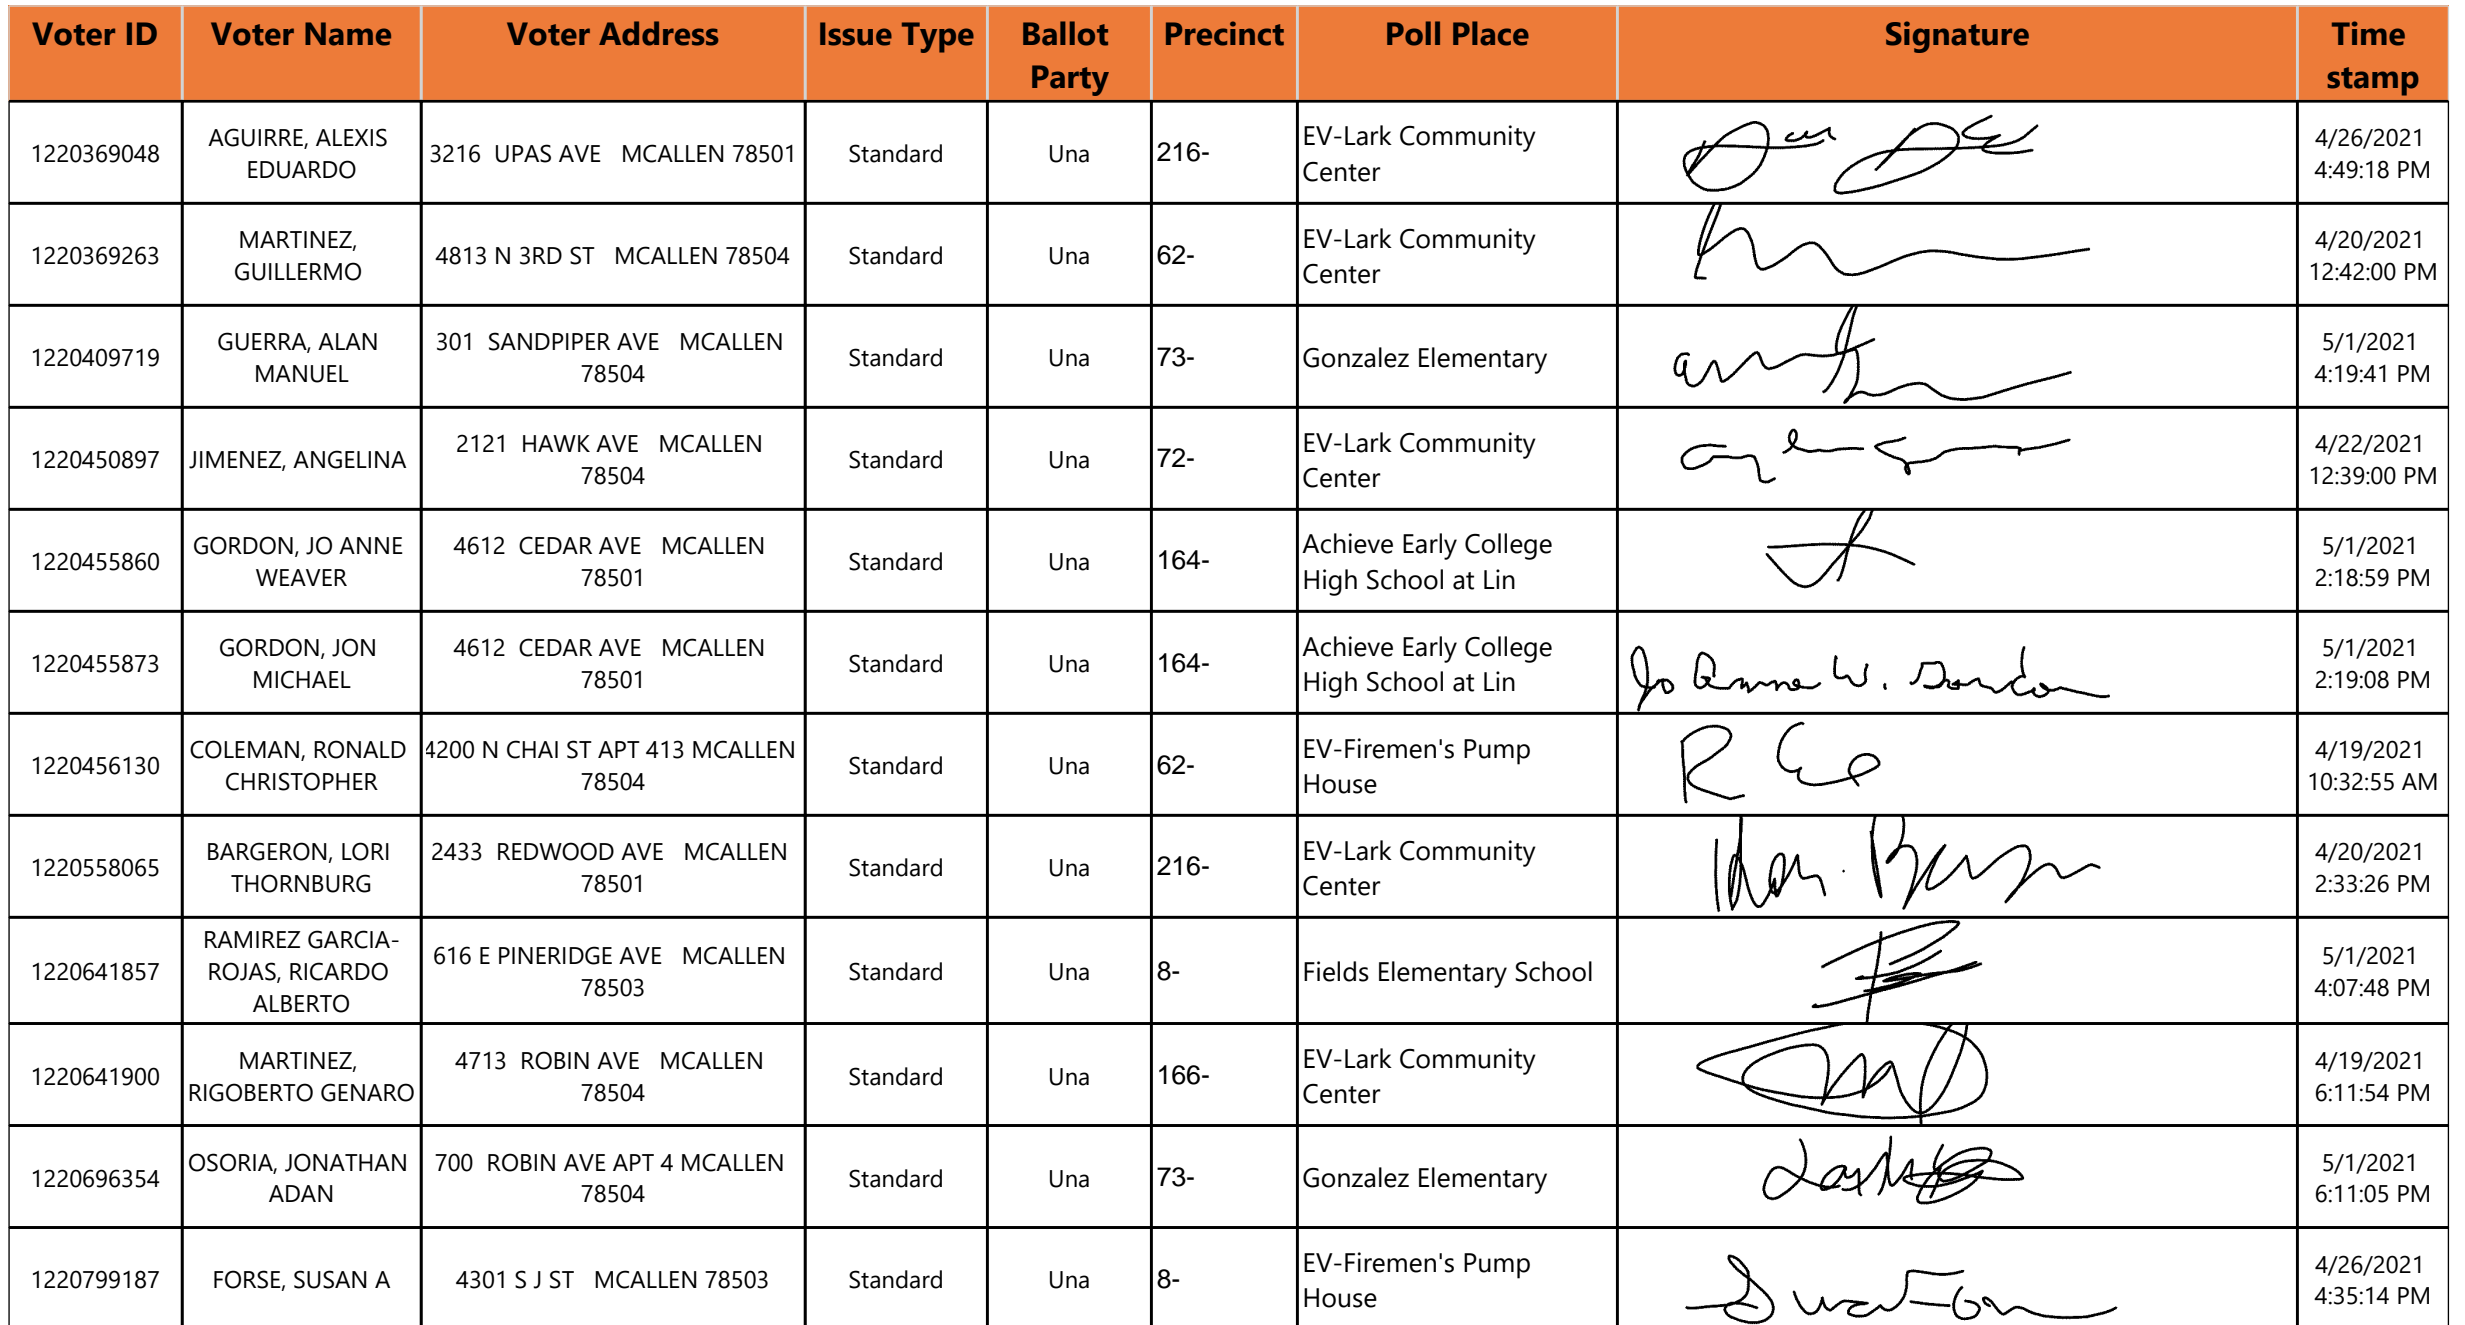 Voter ID Voter Name Voter Address Issue Type Ballot Party Precinct Poll Place Signature Time stamp
1220369048 AGUIRRE, ALEXIS EDUARDO 3216 UPAS AVE MCALLEN 78501 Standard Una 216- EV-Lark Community Center 4/26/2021 4:49:18 PM
1220369263 MARTINEZ, GUILLERMO 4813 N 3RD ST MCALLEN 78504 Standard Una 62- EV-Lark Community Center 4/20/2021 12:42:00 PM
1220409719 GUERRA, ALAN MANUEL 301 SANDPIPER AVE MCALLEN 78504 Standard Una 73- Gonzalez Elementary 5/1/2021 4:19:41 PM
1220450897 JIMENEZ, ANGELINA 2121 HAWK AVE MCALLEN 78504 Standard Una 72- EV-Lark Community Center 4/22/2021 12:39:00 PM
1220455860 GORDON, JO ANNE WEAVER 4612 CEDAR AVE MCALLEN 78501 Standard Una 164- Achieve Early College High School at Lin 5/1/2021 2:18:59 PM
1220455873 GORDON, JON MICHAEL 4612 CEDAR AVE MCALLEN 78501 Standard Una 164- Achieve Early College High School at Lin Jo Anne W. Gordon 5/1/2021 2:19:08 PM
1220456130 COLEMAN, RONALD CHRISTOPHER 4200 N CHAI ST APT 413 MCALLEN 78504 Standard Una 62- EV-Firemen's Pump House 4/19/2021 10:32:55 AM
1220558065 BARGERON, LORI THORNBURG 2433 REDWOOD AVE MCALLEN 78501 Standard Una 216- EV-Lark Community Center 4/20/2021 2:33:26 PM
1220641857 RAMIREZ GARCIA-ROJAS, RICARDO ALBERTO 616 E PINERIDGE AVE MCALLEN 78503 Standard Una 8- Fields Elementary School 5/1/2021 4:07:48 PM
1220641900 MARTINEZ, RIGOBERTO GENARO 4713 ROBIN AVE MCALLEN 78504 Standard Una 166- EV-Lark Community Center 4/19/2021 6:11:54 PM
1220696354 OSORIA, JONATHAN ADAN 700 ROBIN AVE APT 4 MCALLEN 78504 Standard Una 73- Gonzalez Elementary 5/1/2021 6:11:05 PM
1220799187 FORSE, SUSAN A 4301 S J ST MCALLEN 78503 Standard Una 8- EV-Firemen's Pump House 4/26/2021 4:35:14 PM